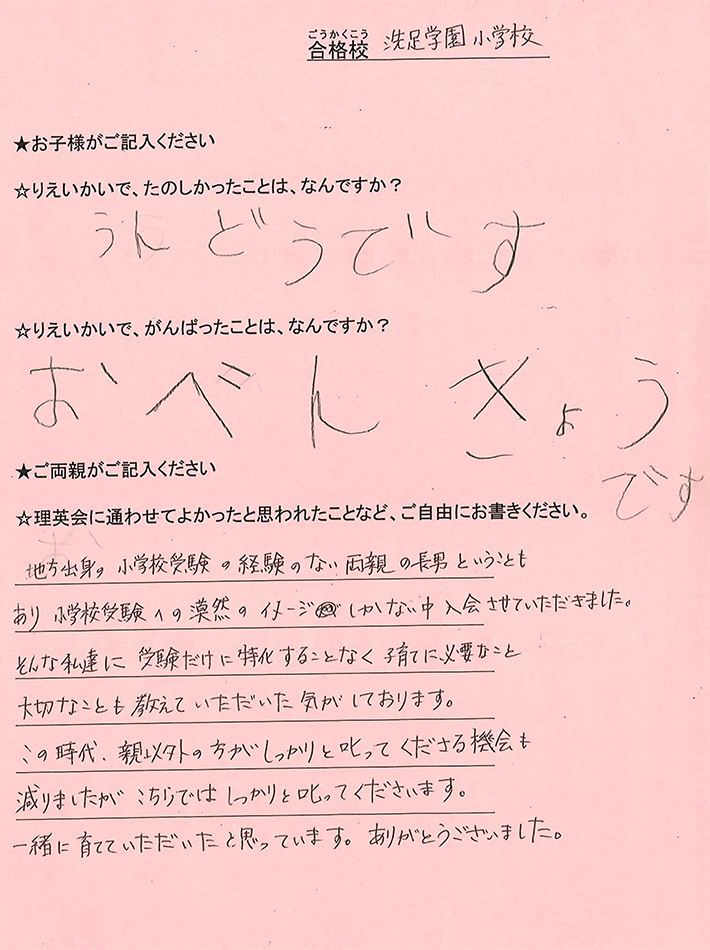 ごうかくこう
合格校 洗足学園小学校
★お子様がご記入ください
☆りえいかいで、たのしかったことは、なんですか？
うんどうです
☆りえいかいで、がんばったことは、なんですか？
おべんきょう
です
★ご両親がご記入ください
☆理英会に通わせてよかったと思われたことなど、ご自由にお書きください。
地方出身。小学校受験の経験のない両親の長男ということも
あり小学校受験への漠然のイメージしかない中入会させていただきました。
そんな私達に受験だけに特化することなく子育てに必要なこと
大切なことも教えていただいた気がしております。
この時代、親以外の方がしっかりと叱ってくださる機会も
減りましたがこちらではしっかりと叱ってくださいます。
一緒に育てていただいたと思っています。ありがとうございました。